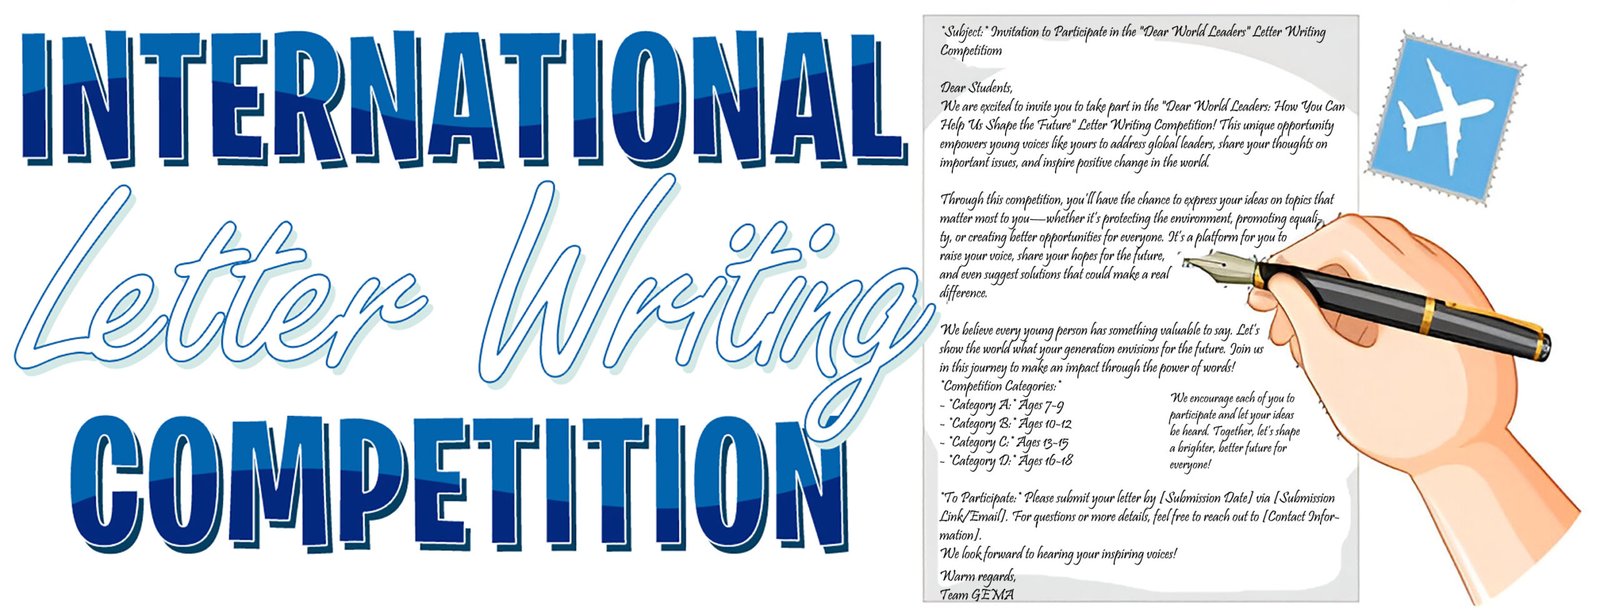 INTERNATIONAL
Letter Writing
COMPETITION
*Subject:* Invitation to Participate in the "Dear World Leaders" Letter Writing
Competitiom
Dear Students,
We are excited to invite you to take part in the "Dear World Leaders: How You Can
Help Us Shape the Future" Letter Writing Competition! This unique opportunity
empowers young voices like yours to address global leaders, share your thoughts on
important issues, and inspire positive change in the world.
Through this competition, you'll have the chance to express your ideas on topics that
matter most to you—whether it's protecting the environment, promoting equali-
ty, or creating better opportunities for everyone. It's a platform for you to
raise your voice, share your hopes for the future,
and even suggest solutions that could make a real
difference.
We believe every young person has something valuable to say. Let's
show the world what your generation envisions for the future. Join us
in this journey to make an impact through the power of words!
*Competition Categories:*
- *Category A:* Ages 7-9
- *Category B:* Ages 10-12
- *Category C:* Ages 13-15
- *Category D:* Ages 16-18
We encourage each of you to
participate and let your ideas
be heard. Together, let's shape
a brighter, better future for
everyone!
*To Participate:* Please submit your letter by [Submission Date] via [Submission
Link/Email]. For questions or more details, feel free to reach out to [Contact Infor-
mation].
We look forward to hearing your inspiring voices!
Warm regards,
Team GEMA